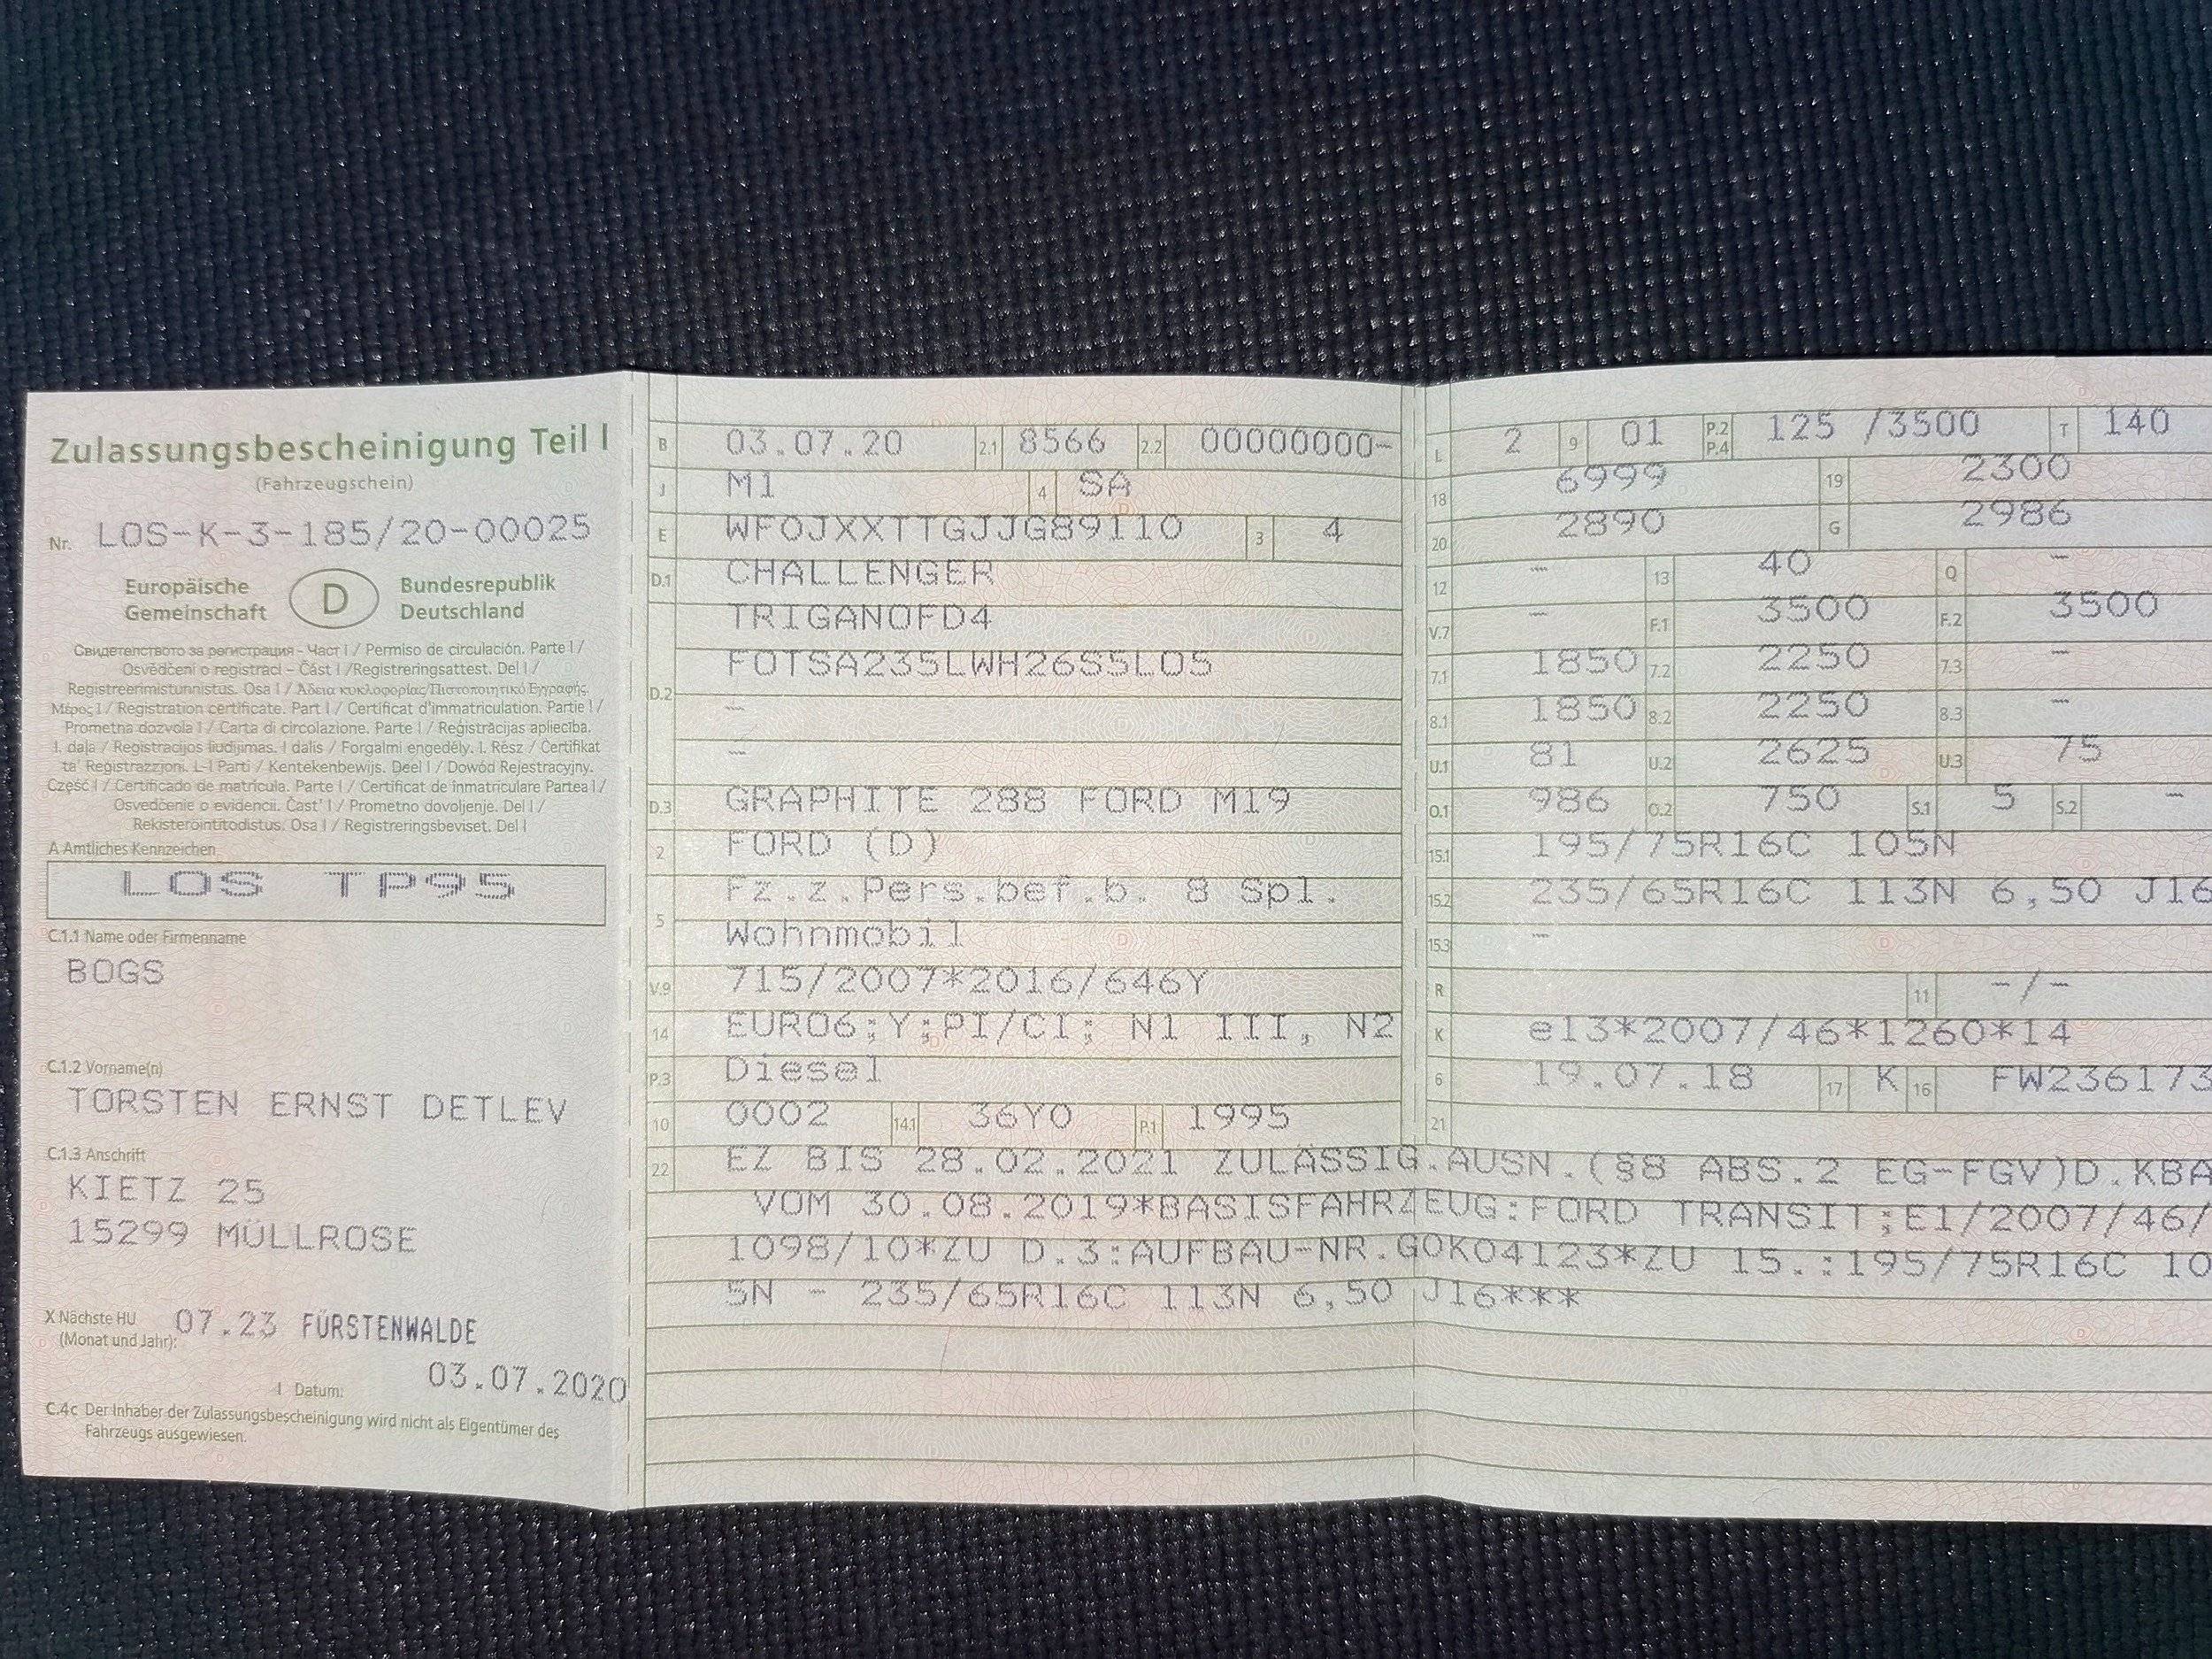 Zulassungsbescheinigung Teil I
(Fahrzeugschein)
Nr. LOS-K-3-185/20-00025
Europäische Gemeinschaft
D
Bundesrepublik Deutschland
Свидетелството за регистрация - Част I / Permiso de circulación. Parte I /
Osvědčení o registraci – Část I /Registreringsattest. Del I /
Registreerimistunnistus. Osa I / Άδεια κυκλοφορίας/Πιστοποιητικό Εγγραφής.
Μέρος I / Registration certificate. Part I / Certificat d'immatriculation. Partie I /
Prometna dozvola I / Carta di circolazione. Parte I / Reģistrācijas apliecība.
I. daļa / Registracijos liudijimas. I dalis / Forgalmi engedély. I. Rész / Ċertifikat
ta' Reġistrazzjoni. L-I Parti / Kentekenbewijs. Deel I / Dowód Rejestracyjny.
Część I / Certificado de matrícula. Parte I / Certificat de înmatriculare Partea I /
Osvedčenie o evidencii. Časť I / Prometno dovoljenje. Del I /
Rekisteröintitodistus. Osa I / Registreringsbeviset. Del I
A Amtliches Kennzeichen
LOS TP95
C.1.1 Name oder Firmenname
BOGS
C.1.2 Vorname(n)
TORSTEN ERNST DETLEV
C.1.3 Anschrift
KIETZ 25
15299 MÜLLROSE
X Nächste HU (Monat und Jahr): 07.23 FÜRSTENWALDE
I Datum: 03.07.2020
C.4c Der Inhaber der Zulassungsbescheinigung wird nicht als Eigentümer des
Fahrzeugs ausgewiesen.
B 03.07.20 2.1 8566 2.2 00000000-
J M1 4 SA
E WF0JXXTTGJJG89110 3 4
D.1 CHALLENGER
TRIGANOFD4
D.2 FOTSA235LWH26S5L05
-
-
D.3 GRAPHITE 288 FORD M19
2 FORD (D)
5 Fz.z.Pers.bef.b. 8 Spl.
Wohnmobil
V.9 715/2007*2016/646Y
14 EURO6;Y;PI/CI; N1 III, N2
P.3 Diesel
10 0002 14.1 36Y0 P.1 1995
L 2 9 01 P.2 P.4 125 /3500 T 140
18 6999 19 2300
20 2890 G 2986
12 - 13 40 Q -
V.7 - F.1 3500 F.2 3500
7.1 1850 7.2 2250 7.3 -
8.1 1850 8.2 2250 8.3 -
U.1 81 U.2 2625 U.3 75
O.1 986 O.2 750 S.1 5 S.2 -
15.1 195/75R16C 105N
15.2 235/65R16C 113N 6,50 J16
15.3 -
R 11 -/-
K e13*2007/46*1260*14
6 19.07.18 17 K 16 FW236173
21
22 EZ BIS 28.02.2021 ZULÄSSIG.AUSN.(§8 ABS.2 EG-FGV)D.KBA
VOM 30.08.2019*BASISFAHRZEUG:FORD TRANSIT;E1/2007/46/
1098/10*ZU D.3:AUFBAU-NR.G0K04123*ZU 15.:195/75R16C 10
5N - 235/65R16C 113N 6,50 J16***